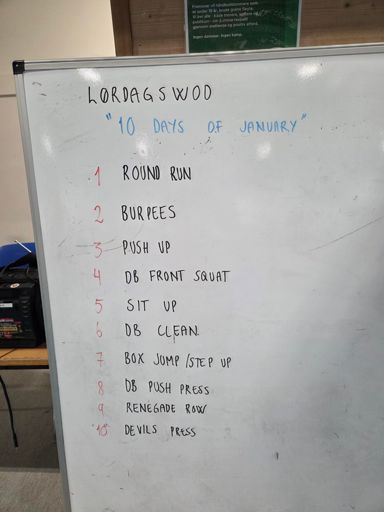 LØRDAGSWOD
"10 DAYS OF JANUARY"
1 ROUND RUN
2 BURPEES
3 PUSH UP
4 DB FRONT SQUAT
5 SIT UP
6 DB CLEAN
7 BOX JUMP/STEP UP
8 DB PUSH PRESS
9 RENEGADE ROW
"10" DEVILS PRESS